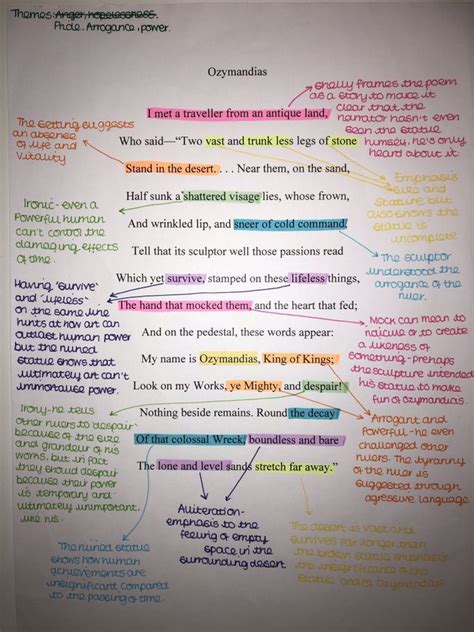 Themes: Anger, hopelessness.
Pride, Arrogance, power.
Ozymandias
I met a traveller from an antique land,
Who said—"Two vast and trunk less legs of stone
Stand in the desert. . . . Near them, on the sand,
Half sunk a shattered visage lies, whose frown,
And wrinkled lip, and sneer of cold command,
Tell that its sculptor well those passions read
Which yet survive, stamped on these lifeless things,
The hand that mocked them, and the heart that fed;
And on the pedestal, these words appear:
My name is Ozymandias, King of Kings;
Look on my Works, ye Mighty, and despair!
Nothing beside remains. Round the decay
Of that colossal Wreck, boundless and bare
The lone and level sands stretch far away."
The setting suggests
an absence
of life and
vitality
Ironic- even a
powerful human
can't control the
damaging effects
of time.
Having 'survive'
and 'lifeless'
on the same line
hints at how art can
outlast human power
but the ruined
statue shows that
ultimately art can't
immortalise power.
Irony- he tells
other rulers to 'despair'
because of the size
and grandeur of his
works. but in fact
they should despair
because their power
is temporary and
ultimately unimportant,
like his.
The ruined statue
shows how human
achievements are
insignificant compared
to the passing of time.
Alliteration-
emphasis to the
feeling of empty
space in the
surrounding desert
Shelly frames the poem
as a story to make it
clear that the
narrator hasn't even
seen the statue
himself, he's only
heard about it
Emphasis
size and
stature but
also shows the
statue is
incomplete
The sculptor
understood the
arrogance of the
ruler.
Mock can mean to
ridicule or to create
a likeness of
something- prehaps
the sculpture intended
his statue to make
fun of Ozymandias.
Arrogant and
powerful- he even
challenged other
rulers. The tyranny
of the ruler is
suggested through
agressive language
The desert is vast and
survives far longer than
the broken statue emphasis
the insignificance of the
statue and so Ozymandias